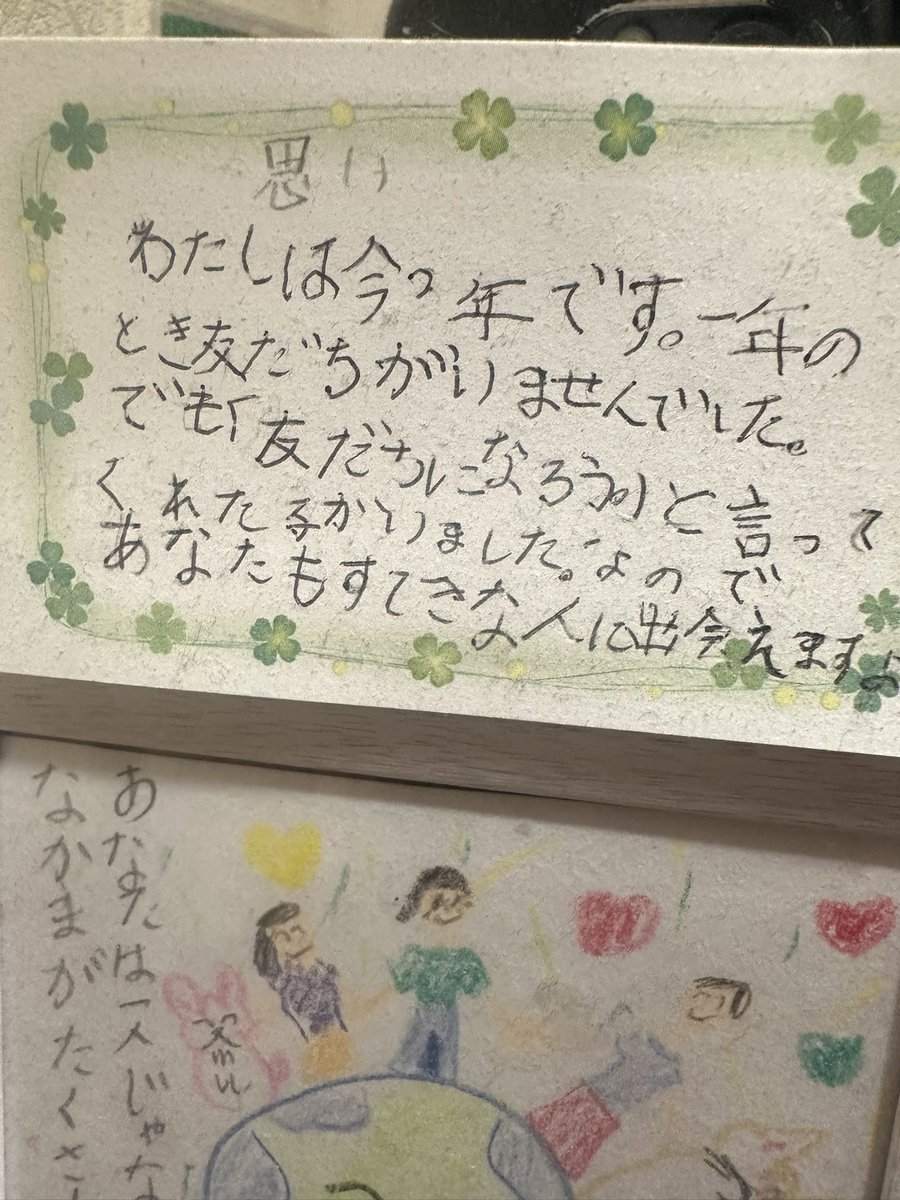 思い
わたしは今2年です。一年の
とき友だちがいませんでした。
でも「友だちになろう。」と言って
くれた子がいました。なので
あなたもすてきな人に出会えますよ
あなたは一人じゃな
なかまがたくさ